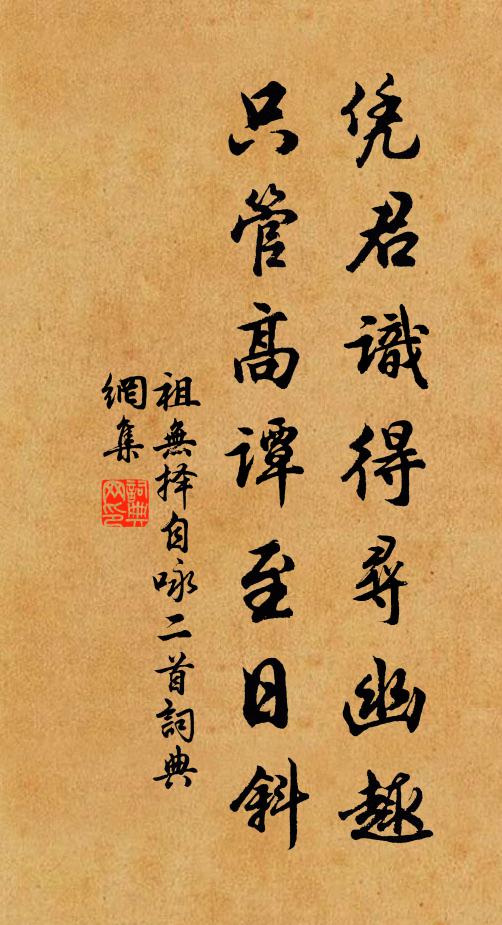 凭君識得尋幽趣
只管高譚至日斜
祖無择自咏二首詞典
網集
詞典
网印